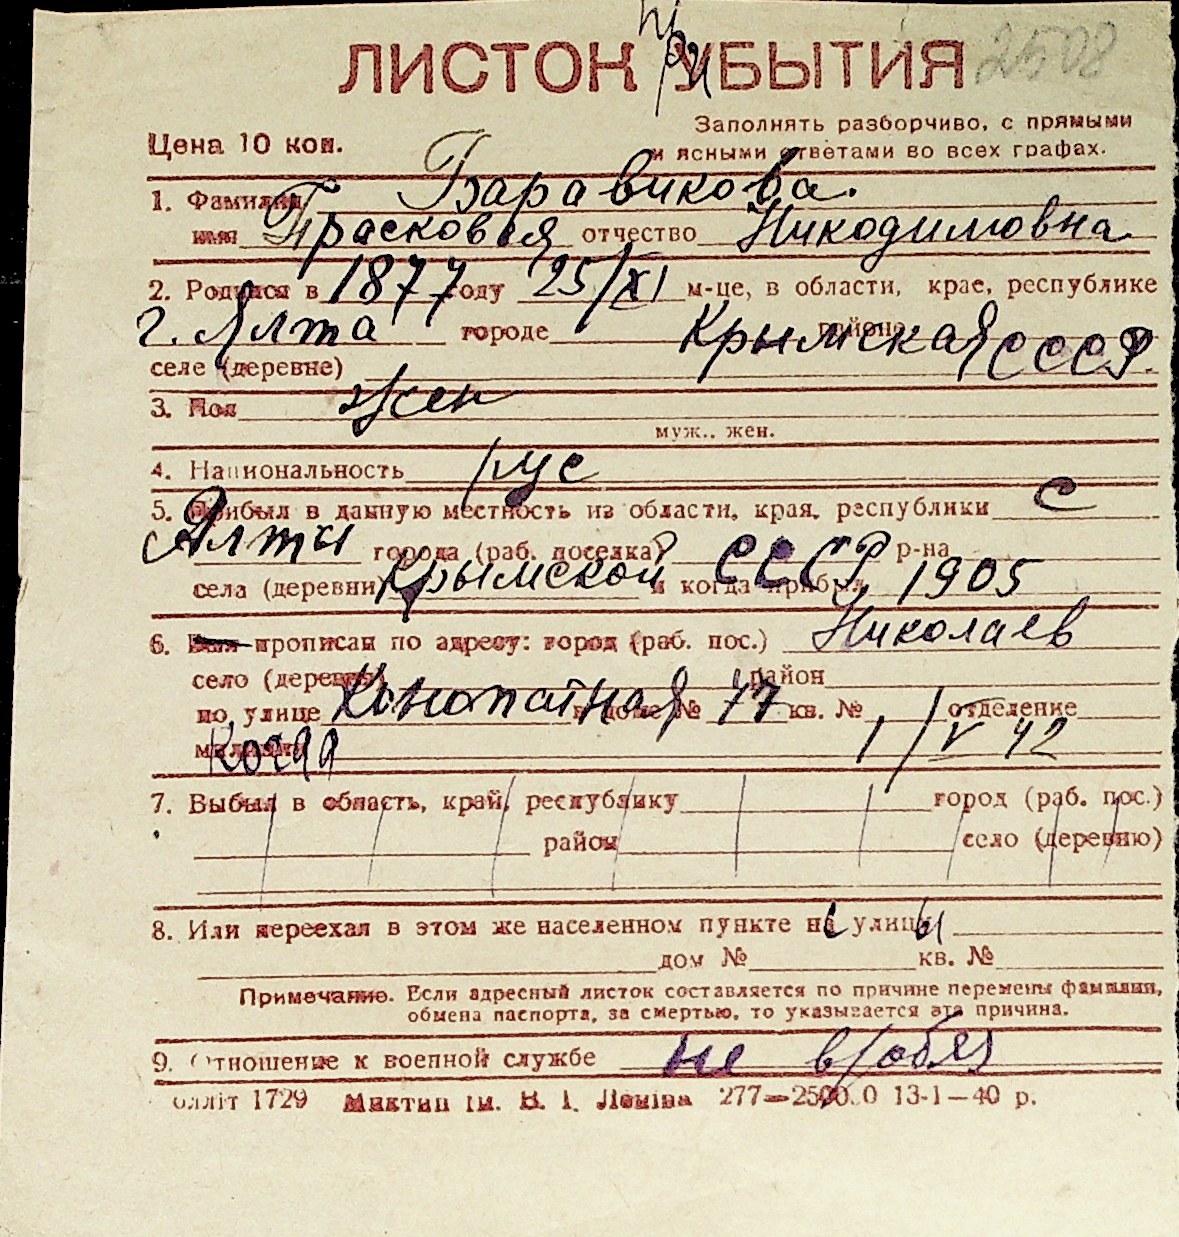 ЛИСТОК при УБЫТИЯ 2508
Заполнять разборчиво, с прямыми
Цена 10 коп. и ясными ответами во всех графах.
1. Фамилия Баравикова.
имя Прасковья отчество Никодимовна
2. Родился в 1877 году 25/XI м-це, в области, крае, республике
г. Ялта городе Крымская районе СССР.
селе (деревне)
3. Пол жен
муж., жен.
4. Национальность рус
5. Прибыл в данную местность из области, края, республики с
Ялты города (раб. поселка) СССР р-на
села (деревни) Крымской и когда прибыл 1905
6. Был прописан по адресу: город (раб. пос.) Николаев
село (деревня) район
по улице в доме № 17 кв. № отделение
милиции 1/V 42
7. Выбыл в область, край, республику город (раб. пос.)
район село (деревню)
8. Или переехал в этом же населенном пункте с улицы
дом № кв. №
Примечание. Если адресный листок составляется по причине перемены фамилии,
обмена паспорта, за смертью, то указывается эта причина.
9. Отношение к военной службе не в/обяз
олліт 1729 ім. В. І. Леніна 277—25000 13-1—40 р.